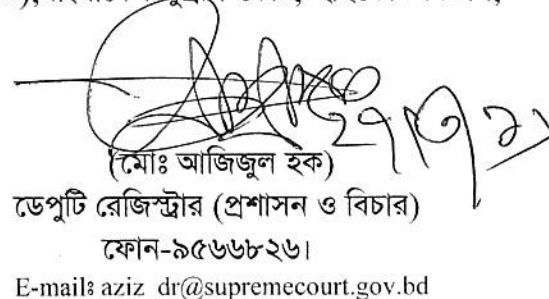 ২৭/৩/২১
(মোঃ আজিজুল হক)
ডেপুটি রেজিস্ট্রার (প্রশাসন ও বিচার)
ফোন-৯৫৬৬৮২৬।
E-mailঃ aziz_dr@supremecourt.gov.bd